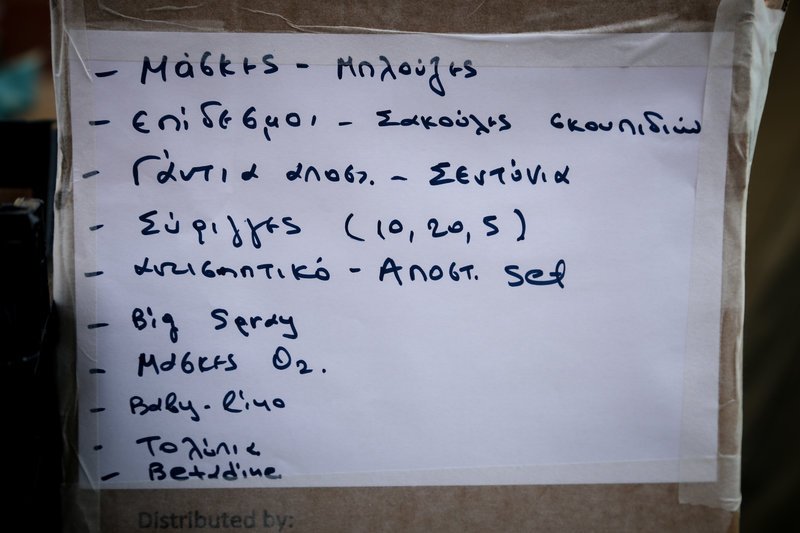 - Μάσκες - Μπλούζες
- Επίδεσμοι - Σακούλες σκουπιδιών
- Γάντια αποστ. - Σεντόνια
- Σύριγγες (10, 20, 5)
- αντισηπτικό - Αποστ. set
- Big Spray
- Μάσκες O2.
- Baby-lino
- Τολύπια
- Betadine
Distributed by: